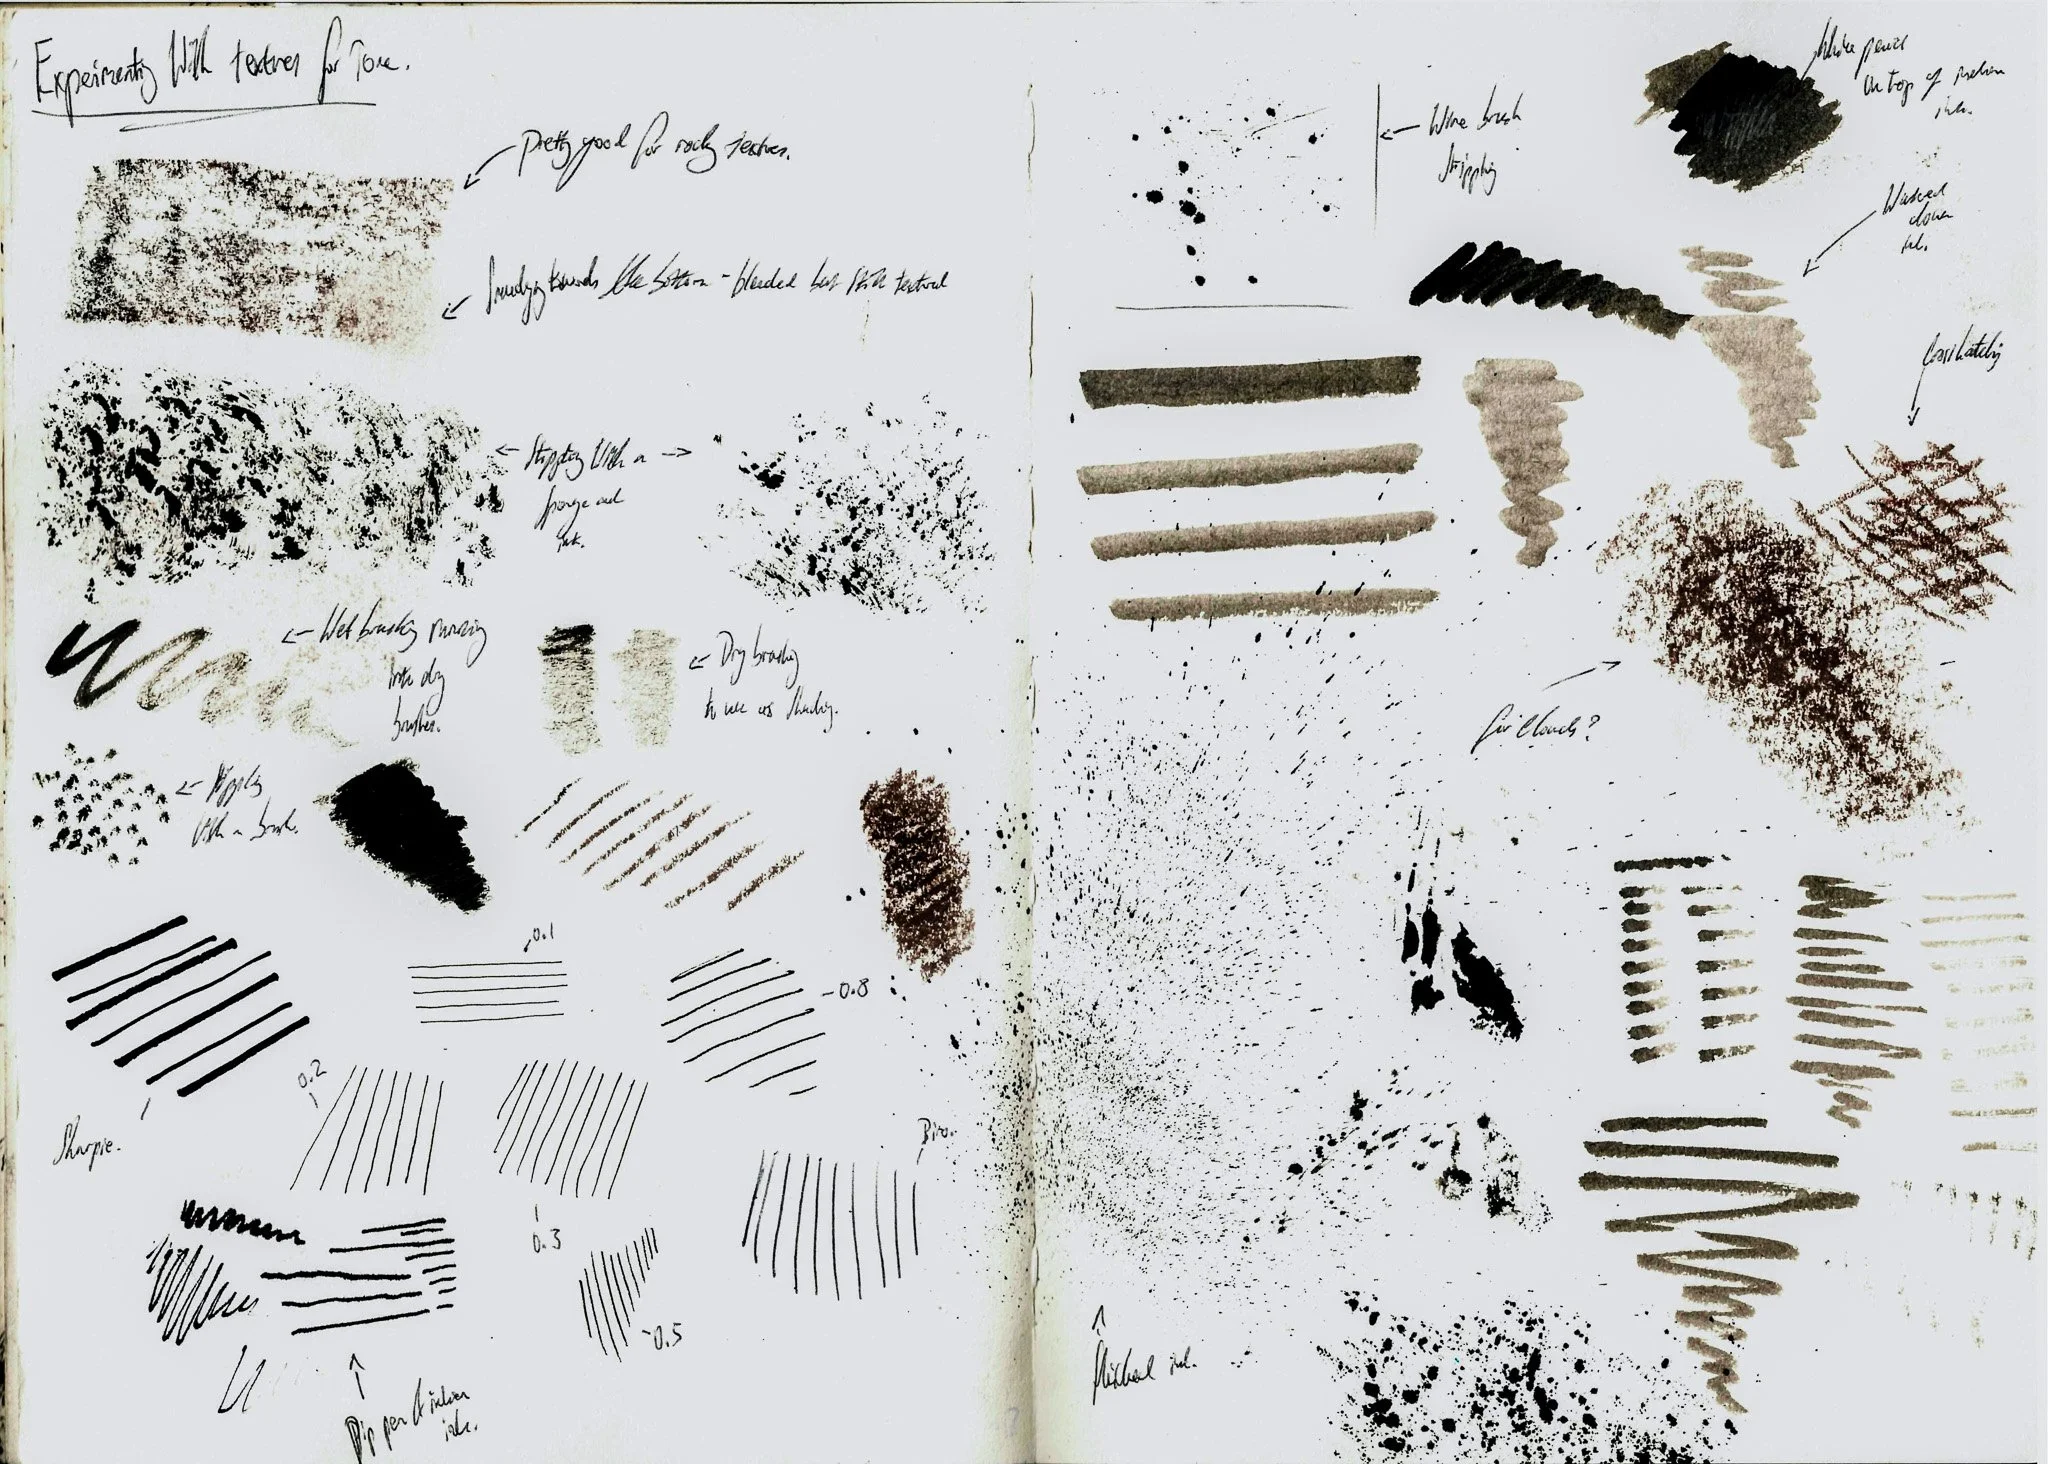 Experimenting With textures for Tone.
Pretty good for rocky textures.
Smudging towards the bottom - blended but still textural
Stippling With a
Sponge and
ink.
Wet brushing running
into dry
brushes.
Dry brushing
to use as Shading.
Stippling
With a brush.
0.1
0.8
0.2
Sharpie.
0.3
Biro.
0.5
Dip pen & indian
ink.
White pencil
On top of indian
ink.
Wire brush
Stippling
Washed
down
ink.
Crosshatching
for Clouds?
Flicked ink.